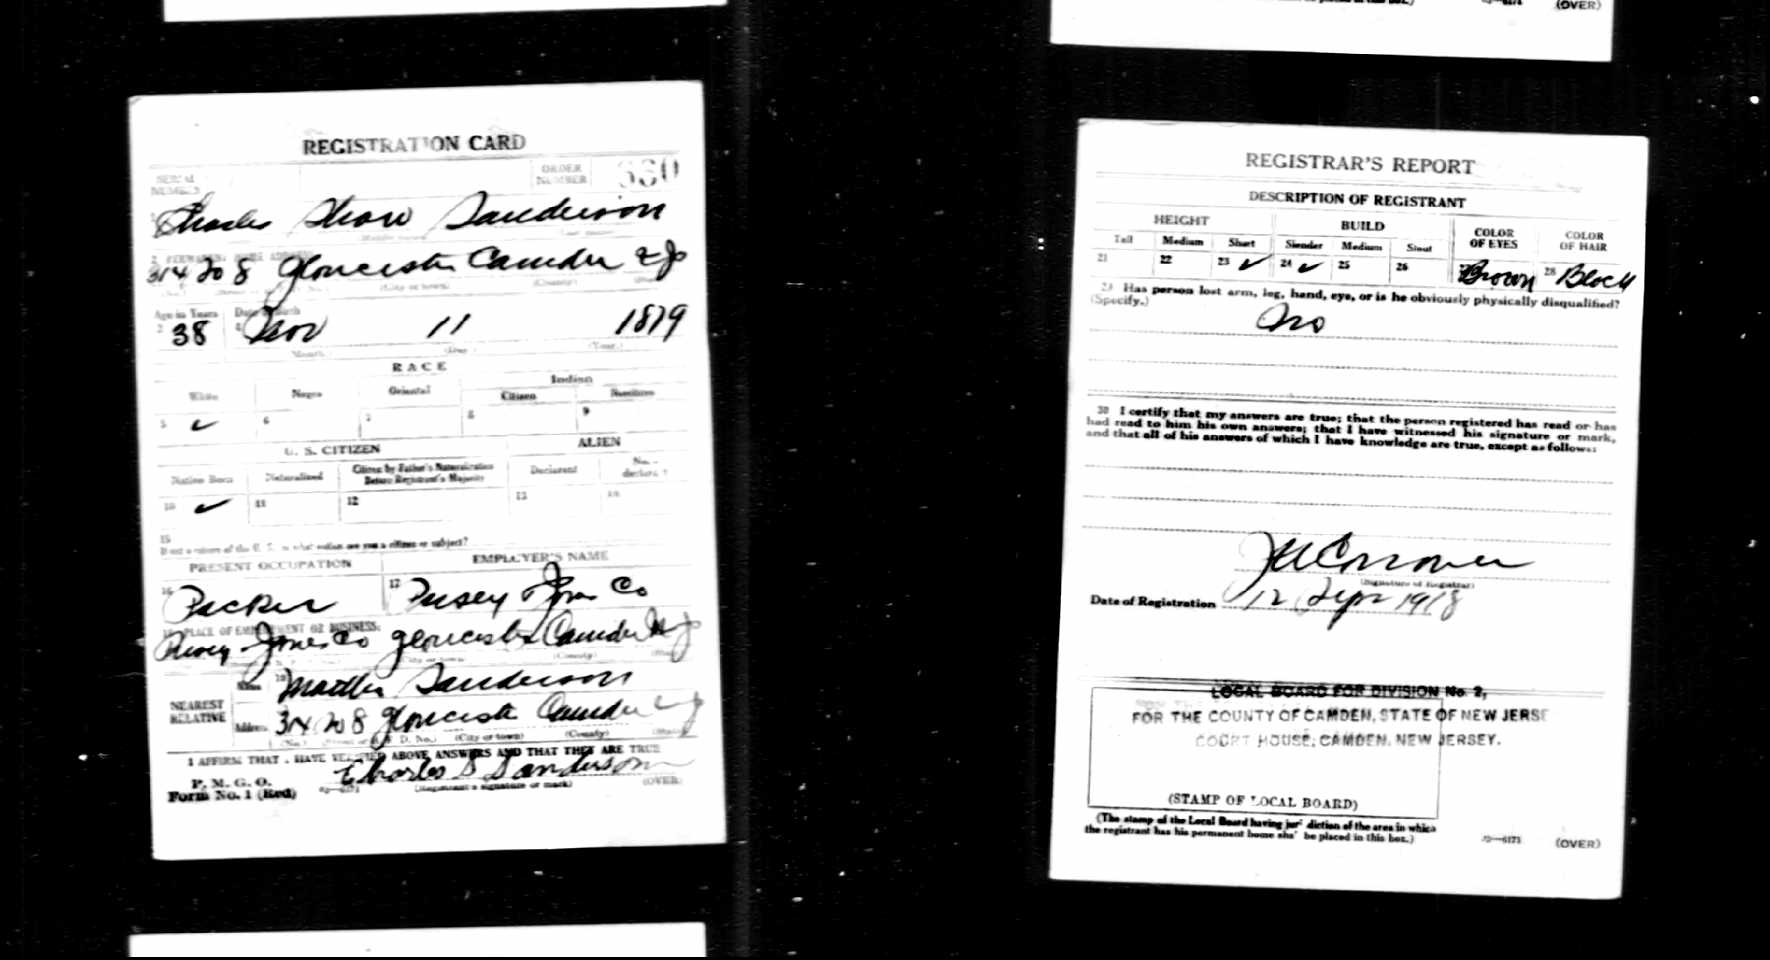 (OVER)
REGISTRATION CARD
SERIAL NUMBER
ORDER NUMBER
Charles Shaw Sanderson
314 20 8 Gloucester Camden NJ
(No.) (City or town) (County) (State)
Age in Years
Date of Birth
3 38 4 Nov 11 1879
Month (Day) (Year)
RACE
White Negro Oriental Indian
Citizen Noncitizen
5 ✓ 6 7 8 9
U. S. CITIZEN ALIEN
Native Born Naturalized Citizen by Father's Naturalization Before Registrant's Majority Declarant Non-declarant
10 ✓ 11 12 13 14
15
If not a citizen of the U. S., of what nation are you a citizen or subject?
PRESENT OCCUPATION EMPLOYER'S NAME
16 17 Pusey & Jones Co
PLACE OF EMPLOYMENT OR BUSINESS:
Pusey Jones Co Gloucester Camden NJ
(City or town) (County) (State)
NEAREST RELATIVE
Name 19 Sanderson
Address 314 20 8 Gloucester Camden NJ
(No.) (City or town) (County) (State)
I AFFIRM THAT I HAVE VERIFIED ABOVE ANSWERS AND THAT THEY ARE TRUE
P. M. G. O.
Form No. 1 (Red) Charles S Sanderson
(Registrant's signature or mark) (OVER)
(OVER)
REGISTRAR'S REPORT
DESCRIPTION OF REGISTRANT
HEIGHT BUILD COLOR OF EYES COLOR OF HAIR
Tall Medium Short Slender Medium Stout
21 22 23 ✓ 24 ✓ 25 26 27 Brown 28 Black
29 Has person lost arm, leg, hand, eye, or is he obviously physically disqualified?
(Specify.)
No
30 I certify that my answers are true; that the person registered has read or has
had read to him his own answers; that I have witnessed his signature or mark,
and that all of his answers of which I have knowledge are true, except as follows:
(Signature of Registrar)
Date of Registration 12 Sept 1918
LOCAL BOARD FOR DIVISION No. 2,
FOR THE COUNTY OF CAMDEN, STATE OF NEW JERSE
COURT HOUSE, CAMDEN, NEW JERSEY.
(STAMP OF LOCAL BOARD)
(The stamp of the Local Board having jurisdiction of the area in which
the registrant has his permanent home shall be placed in this box.)
(OVER)